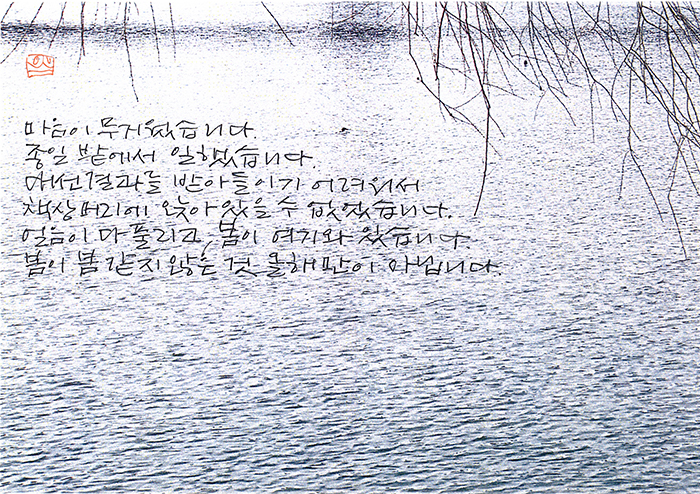 마음이 무거웠습니다.
종일 밭에서 일했습니다.
대선결과를 받아들이기 어려워서
책상머리에 앉아 있을 수 없었습니다.
얼음이 다 풀리고, 봄이 여기와 있습니다.
봄이 봄 같지 않은 것 올해 만이 아닙니다.